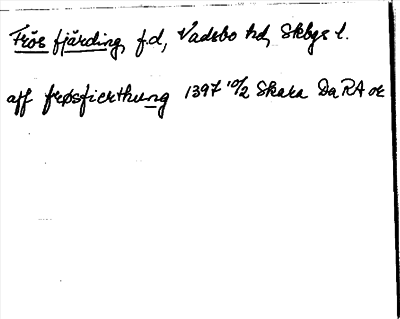 Frös fjärding, f.d., Vadsbo hd, Skbgs l.
aff frøsfierthung 1397 10/2 Skara DaRA or